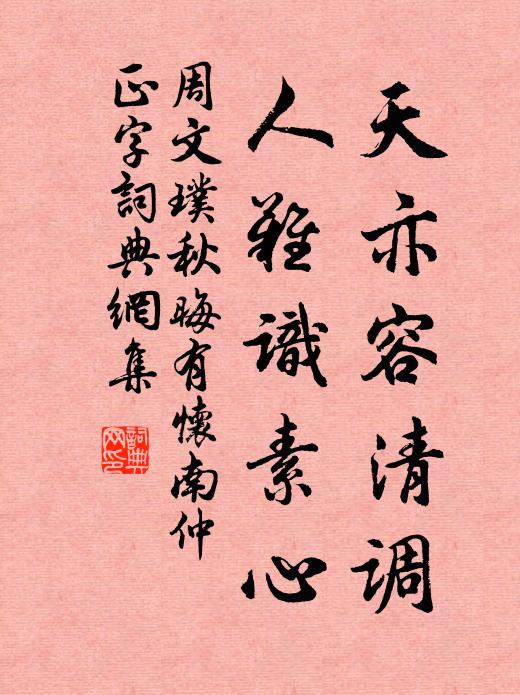 天亦容清调
人難識素心
周文璞秋晦有懷南仲
正字詞典網集
詞典
网印